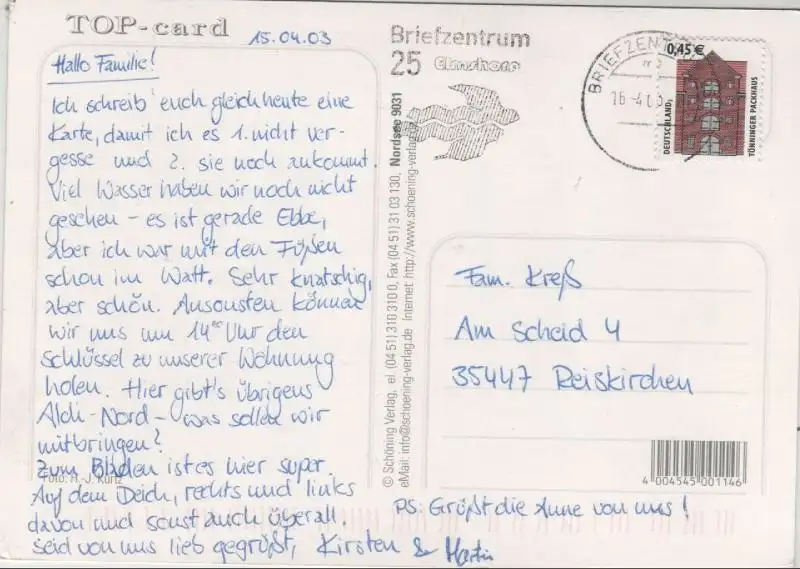 TOP-card
15.04.03
Hallo Familie!
Ich schreib' euch gleich heute eine
Karte, damit ich es 1. nicht ver-
gesse und 2. sie noch ankommt.
Viel Wasser haben wir noch nicht
gesehen – es ist gerade Ebbe,
aber ich war mit den Füßen
schon im Watt. Sehr knatschig,
aber schön. Ansonsten können
wir uns um 14°° Uhr den
Schlüssel zu unserer Wohnung
holen. Hier gibt's übrigens
Aldi-Nord – was sollen wir
mitbringen?
Zum Bladen ist es hier super.
Foto: H.-J. Kürtz
Auf dem Deich, rechts und links
davon und sonst auch überall.
Seid von uns lieb gegrüßt, Kirsten & Martin
PS: Grüßt die Anne von uns!
© Schöning Verlag, el (04 51) 310 310 0, Fax (04 51) 31 03 130, Nordsee 9031
eMail: info@schoening-verlag.de Internet: http://www.schoening-verlag.de
Briefzentrum
25 Elmshorn
BRIEFZENT
16.-4.0
0,45 €
DEUTSCHLAND
TÖNNINGER PACKHAUS
Fam. Kreß
Am Scheid 4
35447 Reiskirchen
4 004545 001146